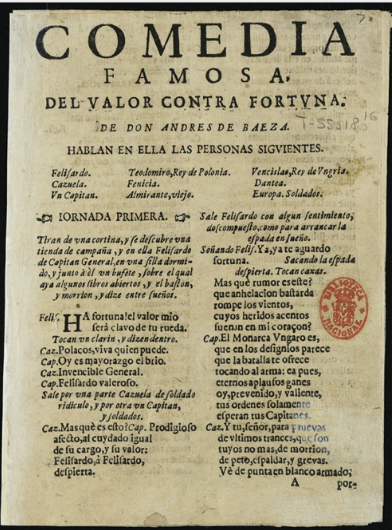 COMEDIA
FAMOSA.
DEL VALOR CONTRA FORTVNA.
DE DON ANDRES DE BAEZA.
HABLAN EN ELLA LAS PERSONAS SIGVIENTES.
Felisardo. Teodomiro, Rey de Polonia. Vencislao, Rey de Vngria.
Cazuela. Fenicia. Dantea.
Vn Capitan. Almirante, viejo. Europa. Soldados.
IORNADA PRIMERA.
Tiran de vna cortina, y se descubre vna
tienda de campaña, y en ella Felisardo
de Capitan General, en vna silla dormido,
y junto à èl vn bufete, sobre el qual
aya algunos libros abiertos, y el baston,
y morrion, y dize entre sueños.
Felis. HA fortuna! el valor mio
serà clavo de tu rueda.
Tocan vn clarin, y dizen dentro.
Cap. Polacos, viva quien puede.
Cap. Oy es mayorazgo el brio.
Caz. Invencible General.
Cap. Felisardo valeroso.
Sale por vna parte Cazuela de soldado
ridiculo, y por otra vn Capitan,
y soldados.
Caz. Mas què es esto? Cap. Prodigioso
afecto, al cuydado igual
de su cargo, y su valor:
Felisardo, à Felisardo,
despierta.
Sale Felisardo con algun sentimiento,
descompuesto, como para arrancar la
espada en sueño.
Soñando Felis. Ya, ya te aguardo
fortuna. Sacando la espada
despierta. Tocan caxas.
Mas què rumor es este?
que anhelacion bastarda
rompe los vientos,
cuyos heridos acentos
suenan en mi coraçon?
Cap. El Monarca Vngaro es,
que en los designios parece
que la batalla te ofrece
tocando al arma: ea pues,
eternos aplausos ganes
oy, prevenido, y valiente,
tus ordenes solamente
esperan tus Capitanes.
Caz. Y tu, señor, para pruevas
de vltimos trances, que son
tuyos no mas, de morrion,
de peto, espaldar, y grevas.
Vè de punta en blanco armado;
A por-
BIBLIOTECA NACIONAL